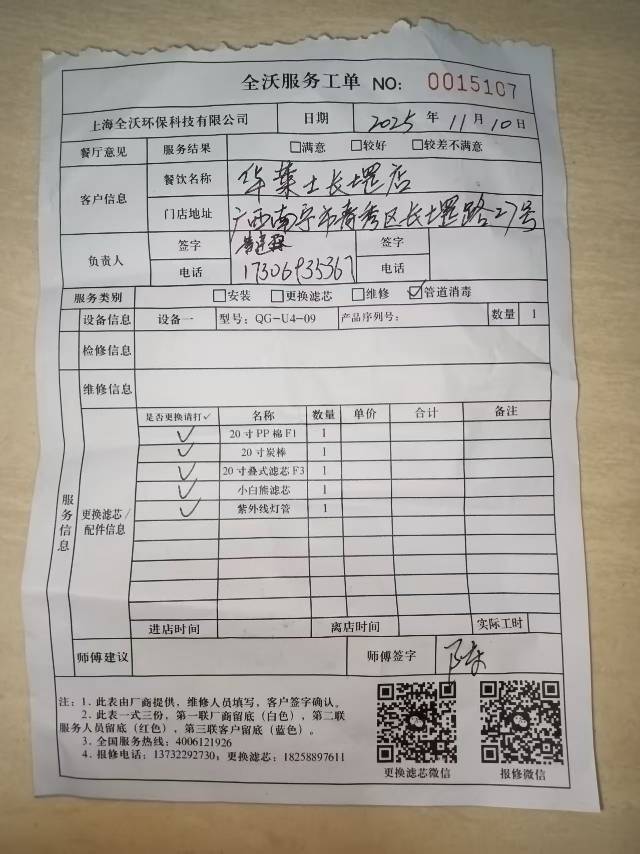 全沃服务工单 NO: 0015107
上海全沃环保科技有限公司 日期 2025 年 11 月 10 日
餐厅意见 服务结果 □满意 □较好 □较差不满意
客户信息 餐饮名称 华莱士长堽店
门店地址 广西南宁市青秀区长堽路27号
负责人 签字 签字
电话 17306935367 电话
服务类别 □安装 □更换滤芯 □维修 ☑管道消毒
设备信息 设备一 型号: QG-U4-09 产品序列号: 数量 1
检修信息
维修信息
服务信息
更换滤芯/配件信息
是否更换请打✓ 名称 数量 单价 合计 备注
✓ 20寸PP棉F1 1
✓ 20寸炭棒 1
✓ 20寸叠式滤芯F3 1
✓ 小白熊滤芯 1
✓ 紫外线灯管 1
进店时间 离店时间 实际工时
师傅建议 师傅签字
注: 1. 此表由厂商提供, 维修人员填写, 客户签字确认。
2. 此表一式三份, 第一联厂商留底(白色), 第二联
服务人员留底(红色), 第三联客户留底(蓝色)。
3. 全国服务热线: 4006121926
4. 报修电话: 13732292730; 更换滤芯: 18258897611
更换滤芯微信 报修微信